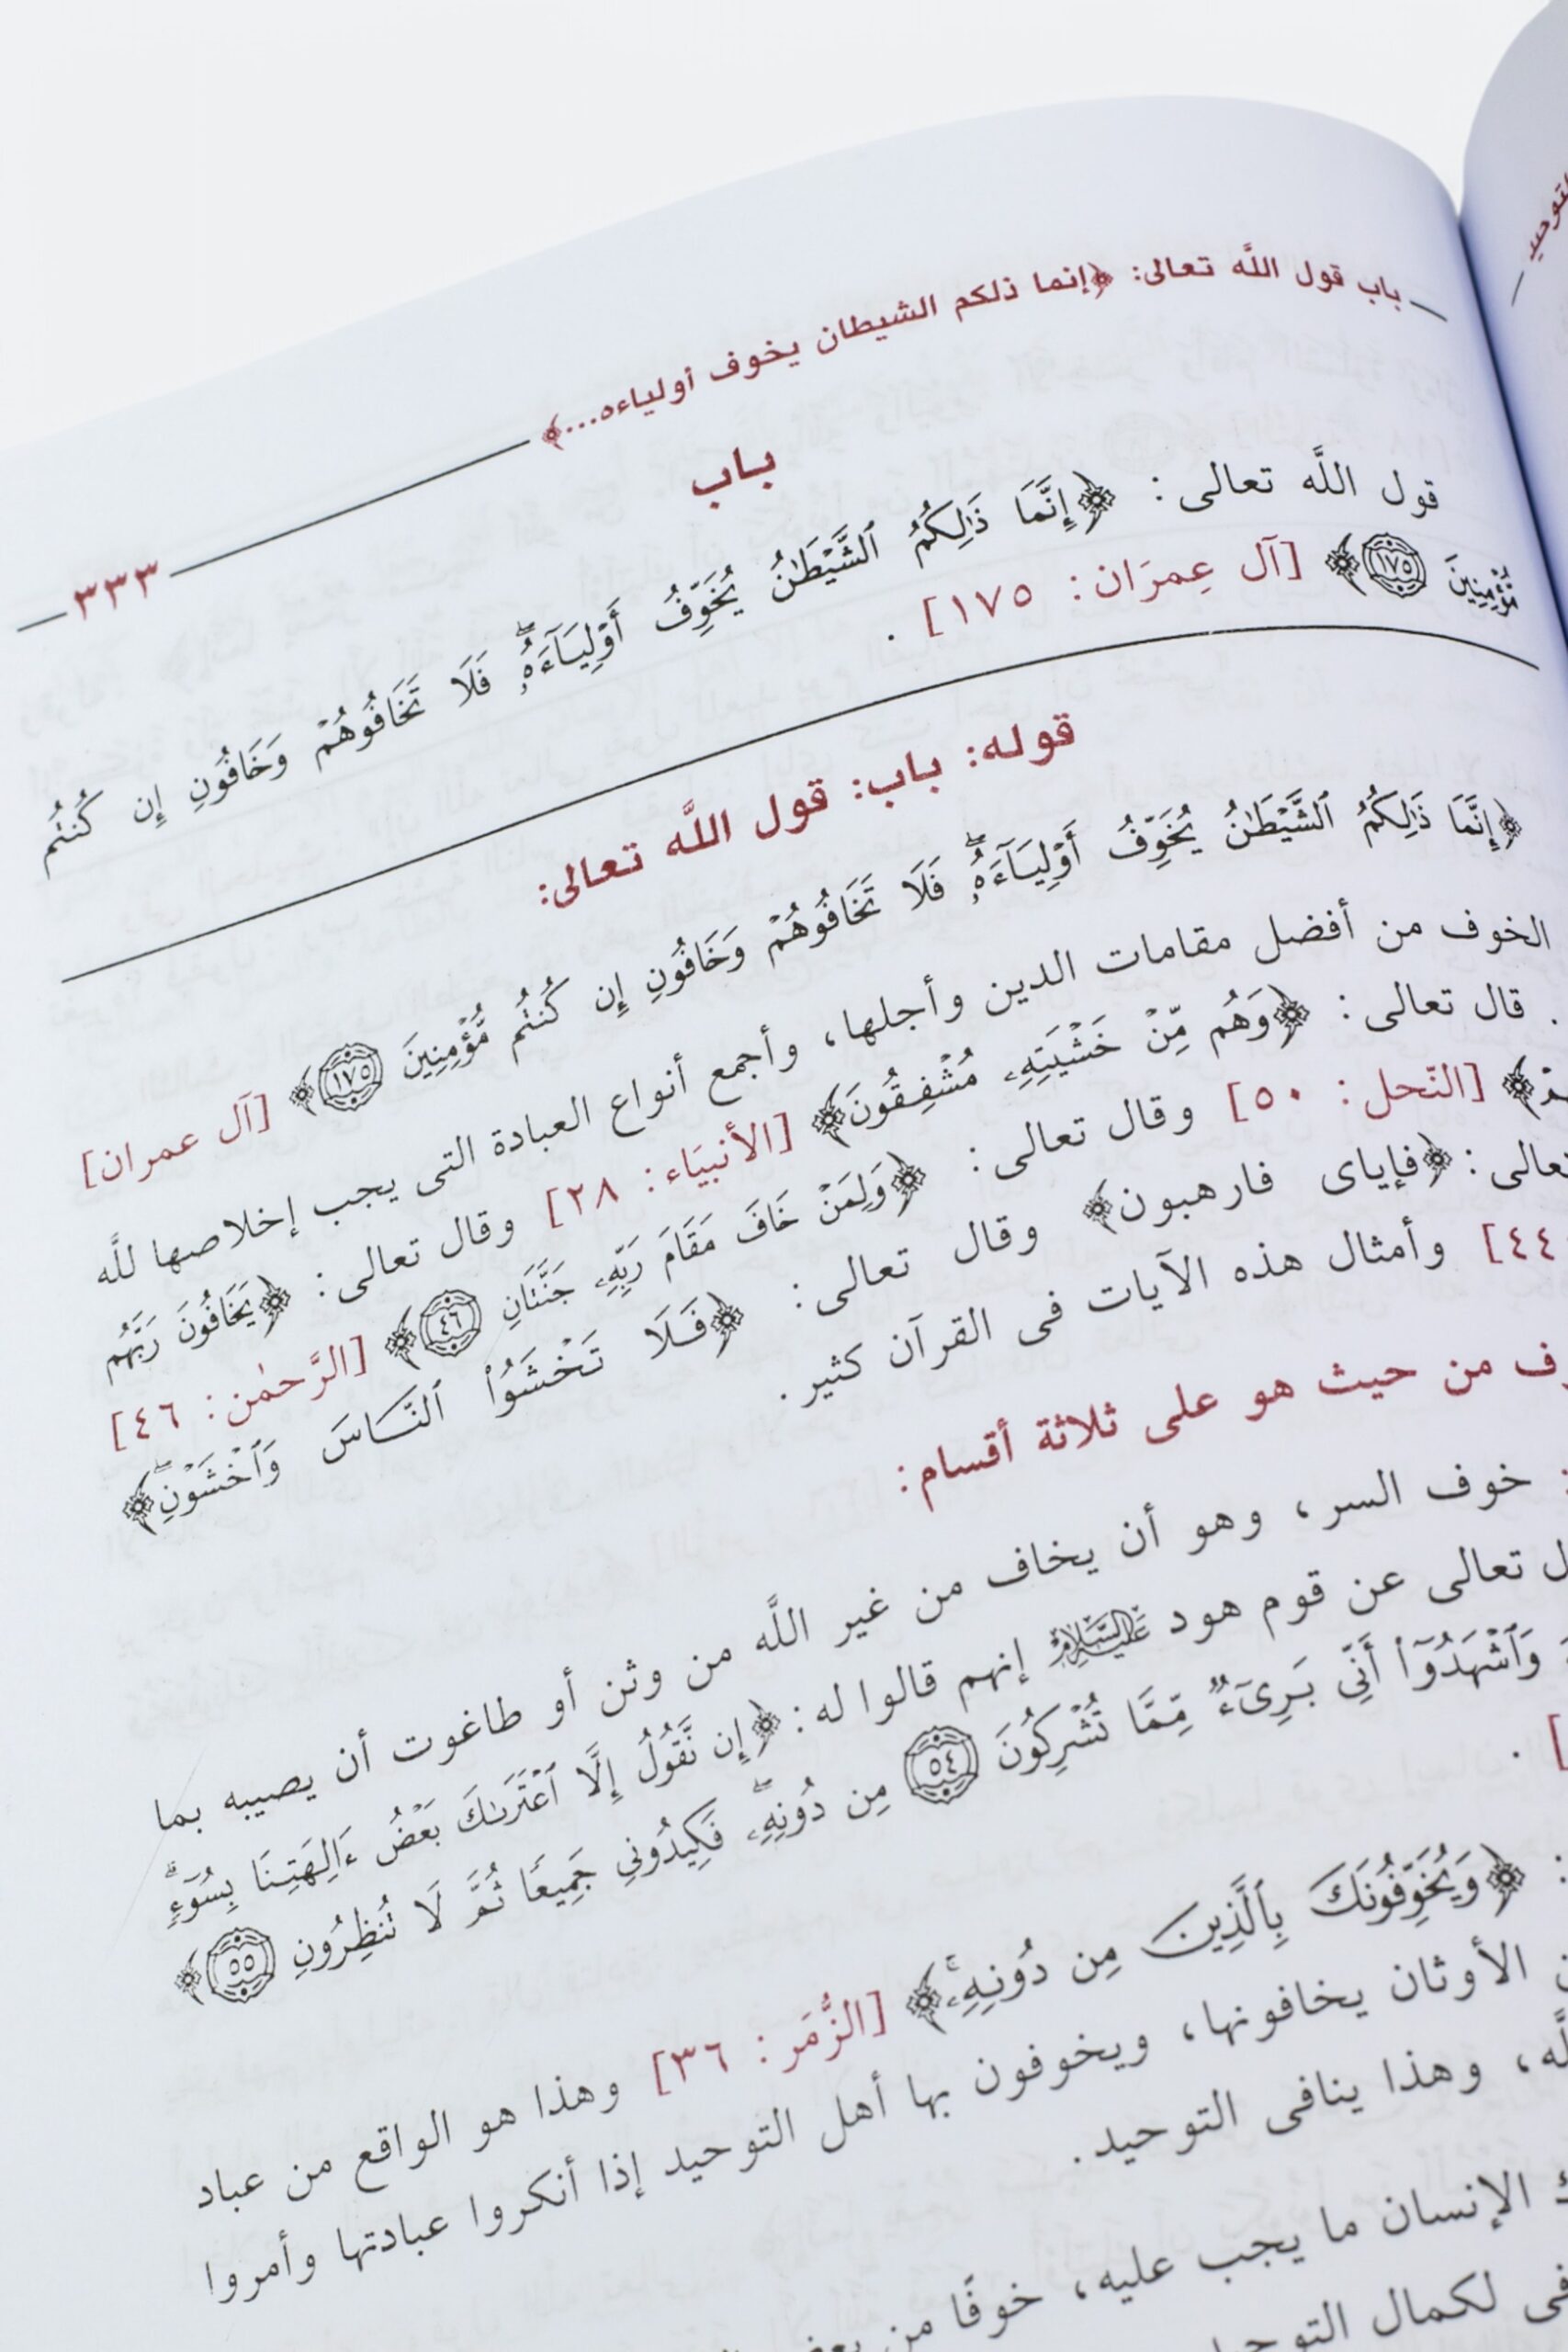 باب قول اللَّه تعالى: ﴿إنما ذلكم الشيطان يخوف أولياءه...﴾ ٣٣٣
باب
قول اللَّه تعالى: ﴿إِنَّمَا ذَٰلِكُمُ ٱلشَّيْطَٰنُ يُخَوِّفُ أَوْلِيَآءَهُۥ فَلَا تَخَافُوهُمْ وَخَافُونِ إِن كُنتُم
مُّؤْمِنِينَ ١٧٥﴾ [آل عِمرَان: ١٧٥].
قوله: باب: قول اللَّه تعالى:
﴿إِنَّمَا ذَٰلِكُمُ ٱلشَّيْطَٰنُ يُخَوِّفُ أَوْلِيَآءَهُۥ فَلَا تَخَافُوهُمْ وَخَافُونِ إِن كُنتُم مُّؤْمِنِينَ ١٧٥﴾ [آل عمران]
الخوف من أفضل مقامات الدين وأجلها، وأجمع أنواع العبادة التى يجب إخلاصها للَّه
. قال تعالى: ﴿وَهُم مِّنْ خَشْيَتِهِۦ مُشْفِقُونَ﴾ [الأنبيَاء: ٢٨] وقال تعالى: ﴿يَخَافُونَ رَبَّهُم
﴾ [النّحل: ٥٠] وقال تعالى: ﴿وَلِمَنْ خَافَ مَقَامَ رَبِّهِۦ جَنَّتَانِ ٤٦﴾ [الرَّحمٰن: ٤٦]
﴿فإياى فارهبون﴾ وقال تعالى: ﴿فَلَا تَخْشَوُا۟ ٱلنَّاسَ وَٱخْشَوْنِ﴾
٤٤] وأمثال هذه الآيات فى القرآن كثير.
من حيث هو على ثلاثة أقسام:
: خوف السر، وهو أن يخاف من غير اللَّه من وثن أو طاغوت أن يصيبه بما
تعالى عن قوم هود عَلَيْهِ السَّلَامُ إنهم قالوا له: ﴿إِن نَّقُولُ إِلَّا ٱعْتَرَىٰكَ بَعْضُ ءَالِهَتِنَا بِسُوٓءٍ
وَٱشْهَدُوٓا۟ أَنِّى بَرِىٓءٌ مِّمَّا تُشْرِكُونَ ٥٤ مِن دُونِهِۦ فَكِيدُونِى جَمِيعًا ثُمَّ لَا تُنظِرُونِ ٥٥﴾
] .
: ﴿وَيُخَوِّفُونَكَ بِٱلَّذِينَ مِن دُونِهِۦ﴾ [الزُّمَر: ٣٦] وهذا هو الواقع من عباد
الأوثان يخافونها، ويخوفون بها أهل التوحيد إذا أنكروا عبادتها وأمروا
، وهذا ينافى التوحيد.
الإنسان ما يجب عليه، خوفًا من
لكمال